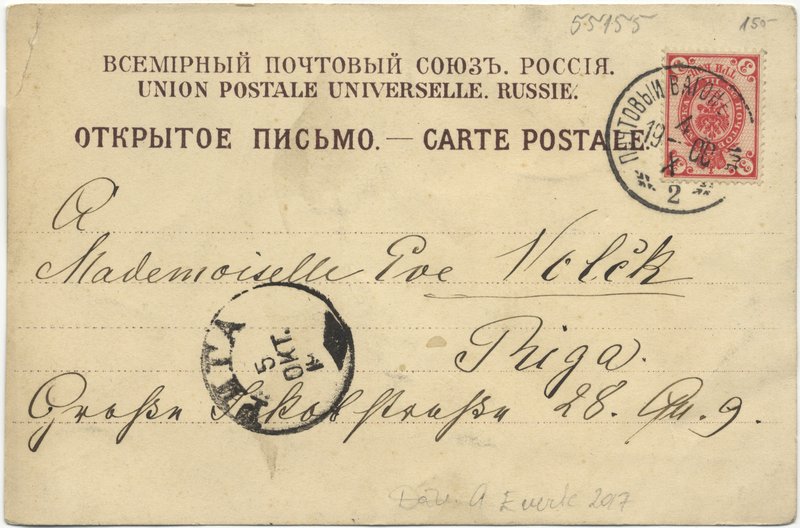 55155
150-
ВСЕМІРНЫЙ ПОЧТОВЫЙ СОЮЗЪ. РОССІЯ.
UNION POSTALE UNIVERSELLE. RUSSIE.
ОТКРЫТОЕ ПИСЬМО.— CARTE POSTALE.
ПОЧТОВЫЙ ВАГОНЪ
4
19-00
X
2
A
Mademoiselle Eve Volčk
Riga.
Große Jakobstraße 28. Qu. 9.
РИГА
5
ОКТ.
2017